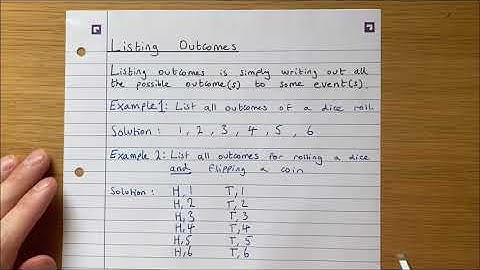 Listing Outcomes
Listing outcomes is simply writing out all
the possible outcome(s) to some event(s).
Example 1: List all outcomes of a dice roll
Solution: 1, 2, 3, 4, 5, 6
Example 2: List all outcomes for rolling a dice
and flipping a coin
Solution: H, 1 T, 1
H, 2 T, 2
H, 3 T, 3
H, 4 T, 4
H, 5 T, 5
H, 6 T, 6